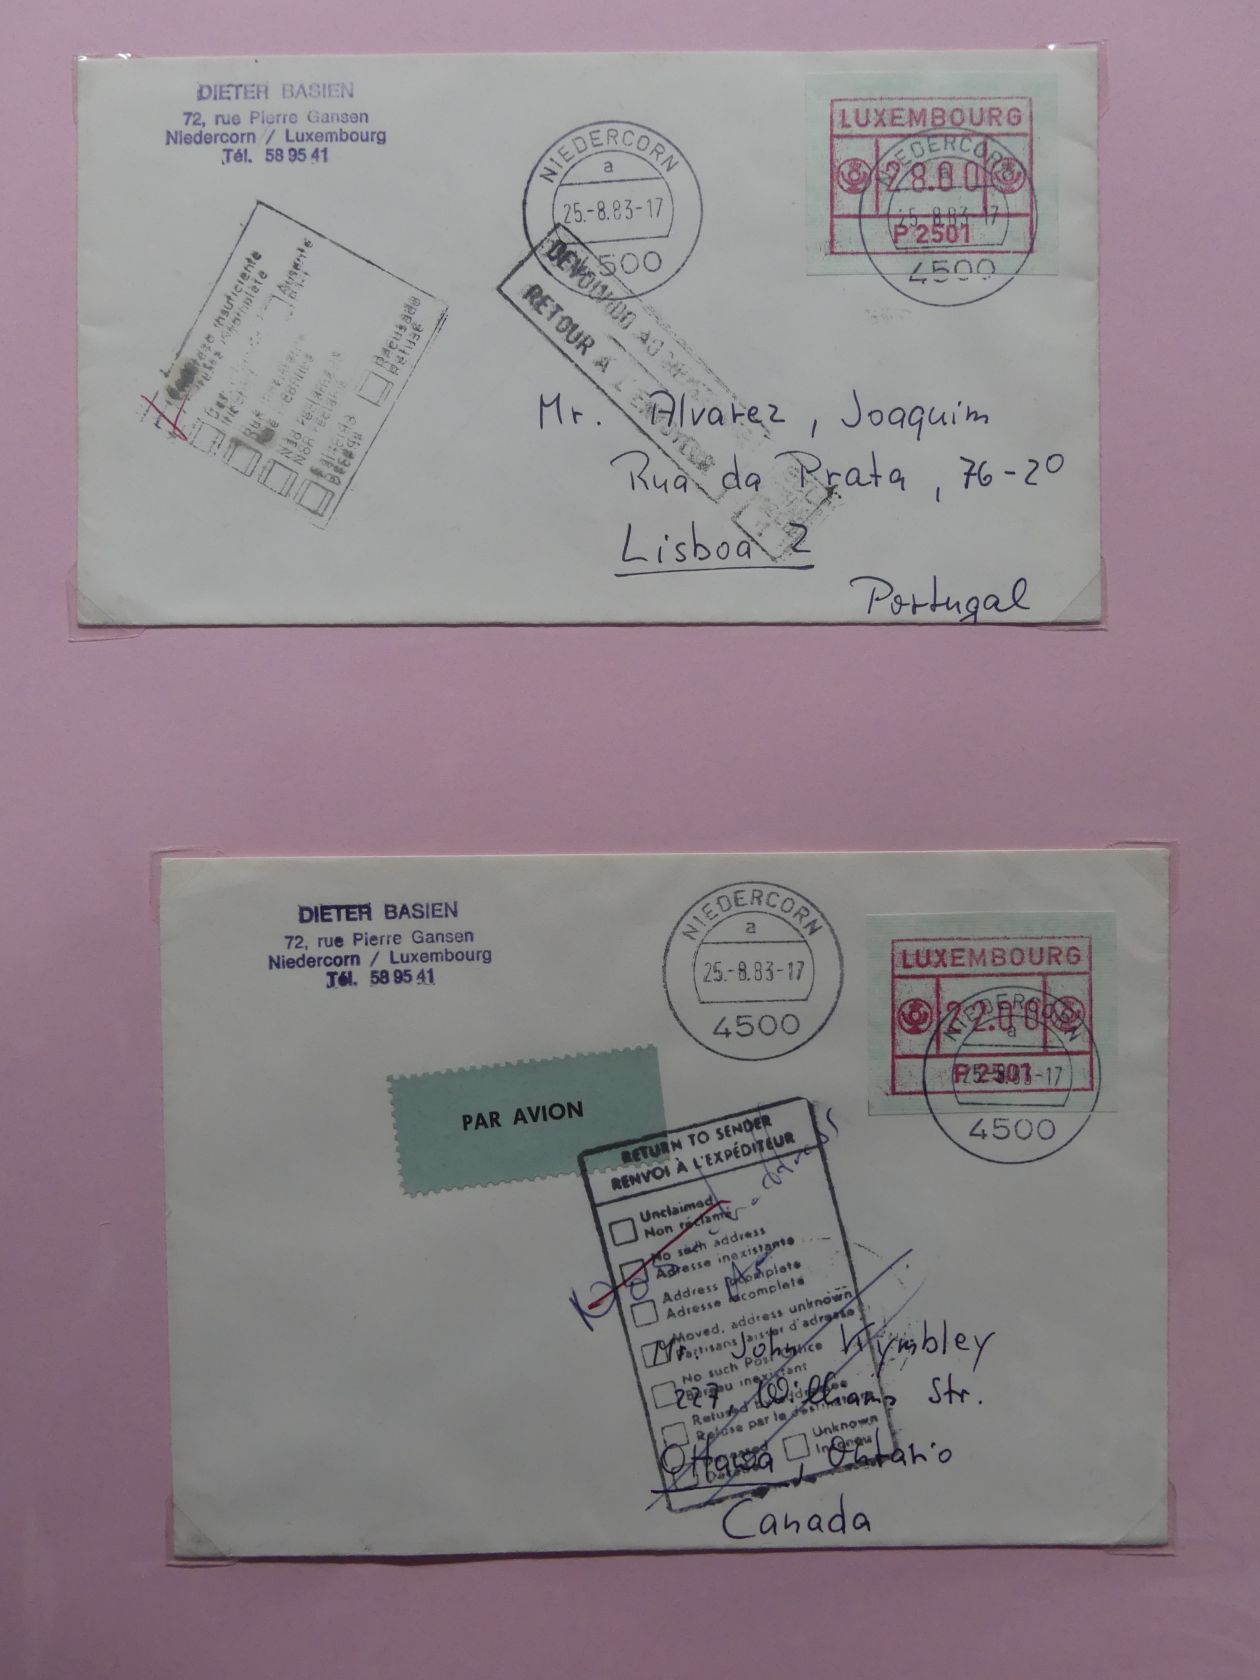 DIETER BASIEN
72, rue Pierre Gansen
Niedercorn / Luxembourg
Tél. 58 95 41
NIEDERCORN
a
25.-8.83-17
4500
LUXEMBOURG
28.00
P 2501
NIEDERCORN
a
25.-8.83-17
4500
insuficiente
Ausente
Recusado
Refusé
DEVOLVIDO AO
RETOUR A L'ENVOYEUR
Mr. Alvarez, Joaquim
Rua da Prata, 76-2º
Lisboa 2
Portugal
DIETER BASIEN
72, rue Pierre Gansen
Niedercorn / Luxembourg
Tél. 58 95 41
NIEDERCORN
a
25.-8.83-17
4500
LUXEMBOURG
22.00
P 2501
NIEDERCORN
a
25.-8.83-17
4500
PAR AVION
RETURN TO SENDER
RENVOI À L'EXPÉDITEUR
Unclaimed
Non réclamé
No such address
Adresse inexistante
Address incomplete
Adresse incomplete
Moved, address unknown
Parti sans laisser d'adresse
No such Post Office
Bureau inexistant
Refused by addressee
Refusé par le destinataire
Unknown
Inconnu
Mr. John Wymbley
227, Williams Str.
Ottawa, Ontario
Canada